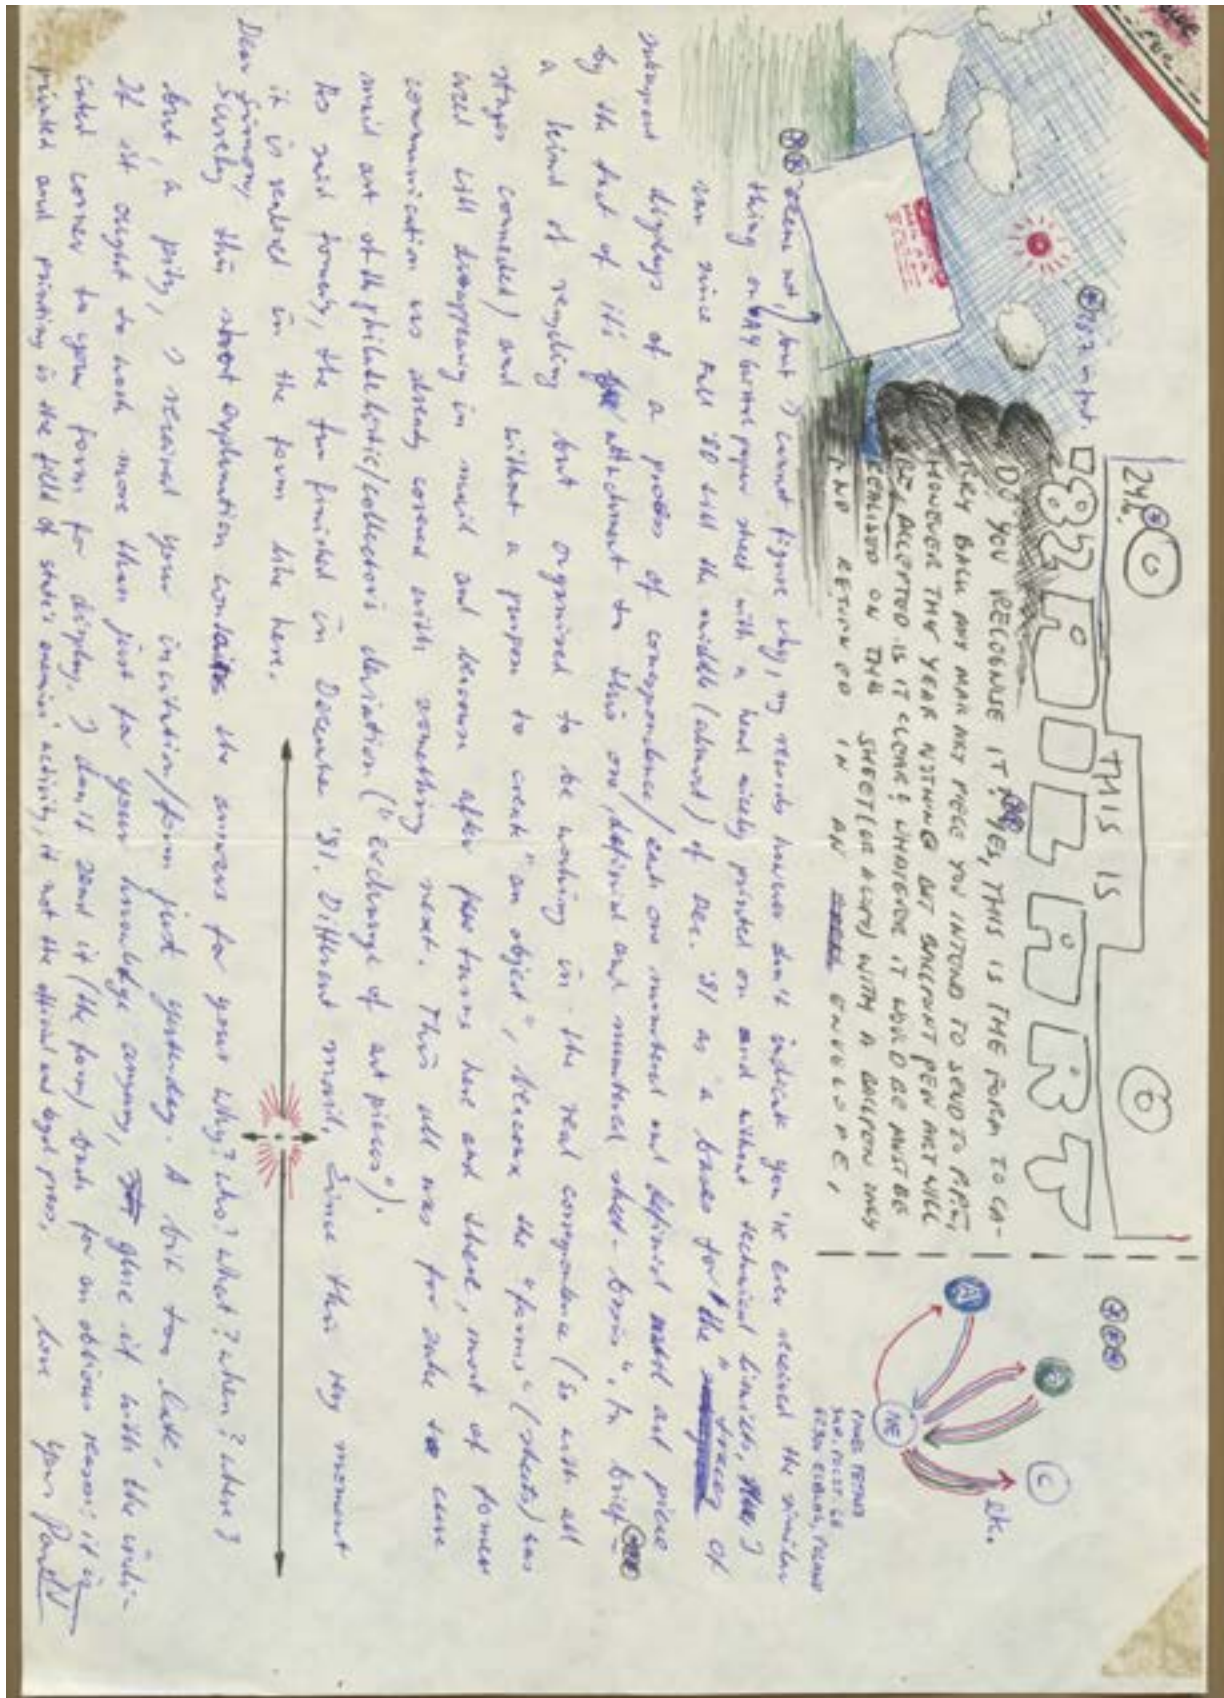 24/6.
THIS IS
'82 MAIL ART
DO YOU RECOGNISE IT? YES, THIS IS THE FORM TO CA-
RRY BACK ANY MAIL ART PIECE YOU INTEND TO SEND TO P.P.,
HOWEVER THIS YEAR NOTHING BUT BALLPOINT PEN ART WILL
BE ACCEPTED. IS IT CLEAR? WHATEVER IT WOULD BE MUST BE
REALISED ON THIS SHEET (OR ALIKE) WITH A BALLPEN ONLY
AND RETURNED IN AN ENVELOPE,
A
C
ME
etc.
PAWEL PETASZ
82-300 ELBLAG, POLAND
seem not, but I cannot figure why, my records however don't indicate you've ever received the similar
thing on A4 paper sheet with a head nicely printed on and without technical limits,
ran since Fall '80 till the middle (almost) of Dec. '81 as a bases for the "traces of
displays of a process of correspondence / each one numbered and defined art piece
by the fact of it's attachment to this one, defined and numbered sheet - basis". In brief -
a kind of recycling but organised to be working in the real correspondence (so with all
stages connected) and without a purpose to create "an object", because the "forms" (sheets) was
used till disappearing in mail and because after few turns here and there, most of
communication was already covered with something next. This all was for sake to cure
mail art of philatelistic/collector's deviation ("exchange of art pieces").
As said formerly, the fun finished in December '81. Different month, Since this very moment
it is revived in the form like here.
Dear
Surely this short explanation contains the answers for yours why? who? what? when? where?
but, a pity, I received your invitation/form just yesterday. A bit too late,
If it ought to work more than just for your knowledge anyway, glue it with the indi-
cated corner to your form for display. I don't send it (the form) back for an obvious reason: it is
printed and printing is the field of state's enemies' activity, if not the official and legal press,
love your Pawel